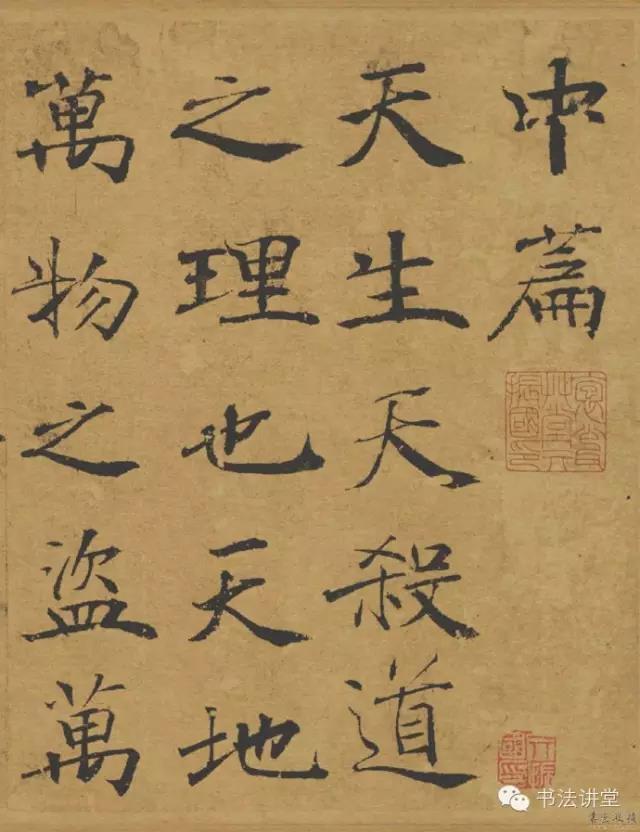 中篇
天生天殺道
之理也天地
萬物之盜萬
书法讲堂